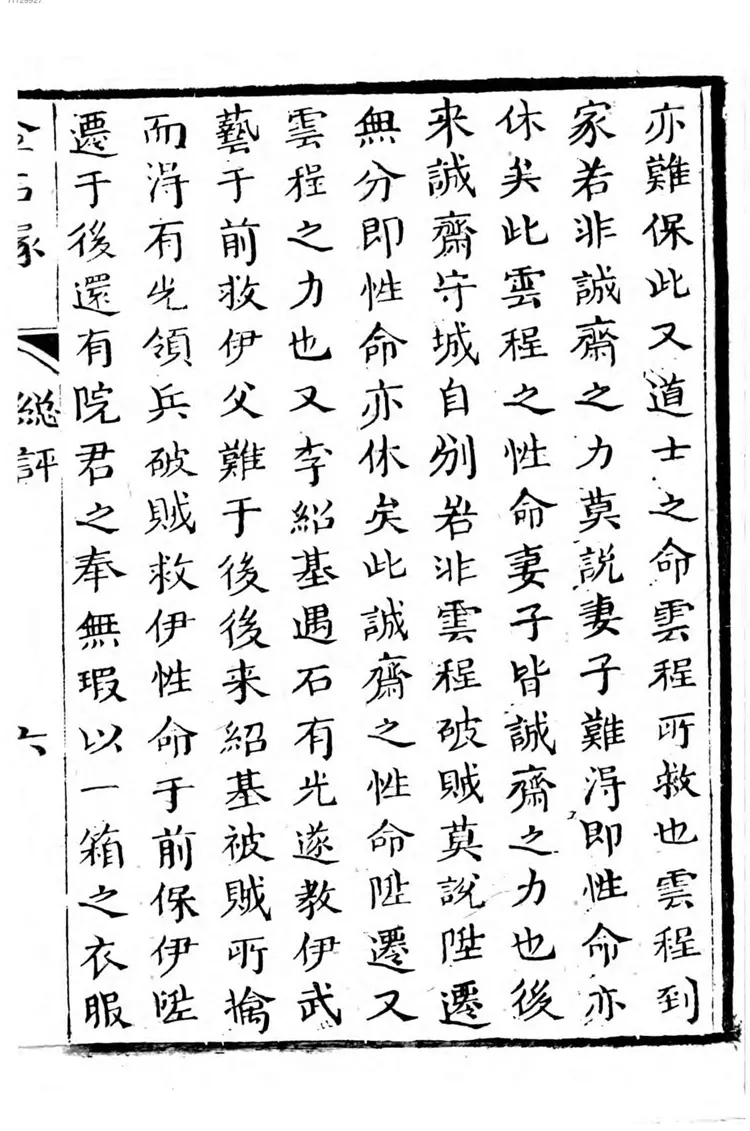 亦難保此又道士之命雲程所救也雲程到
家若非誠齋之力莫説妻子難淂即性命亦
休矣此雲程之性命妻子皆誠齋之力也後
来誠齋守城自别若非雲程破賊莫説陞遷
無分即性命亦休矣此誠齋之性命陞遷又
雲程之力也又李紹基遇石有光遂教伊武
藝于前救伊父難于後後来紹基被賊所擒
而淂有光領兵破賊救伊性命于前保伊陞
遷于後還有院君之奉無瑕以一箱之衣服
總評
六